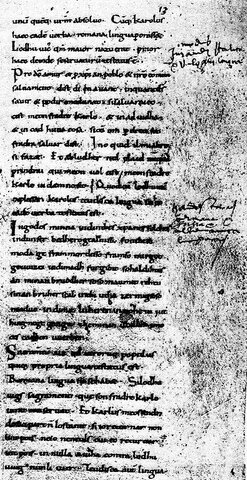 13
unũ quẽq; ũrm absoluo. Cũq; karolus
haec eadẽ uerba romana lingua
Lodhuuic qm̃ maior natu erat prior
haec deinde se seruaturũ testatus ẽ
Pro dõ amur et pxpian poblo et nrõ comun
saluament. dist di en auant. inquantds
sauir et podir medunat. sisaluaraieo.
cist meon fradre karlo. et in adiudha
et in cad huna cosa. sicũ om p dreit son
fradra saluar dist. Ino quid il mialtre
si fazet. Et abludher nul plaid nũquã
prindrai qui meon uol cist. meon fradre
karle in damno sit. Quod cũ lodhuuic
explesset. karolus teudisca lingua sic hec
eadẽ uerba testatus est.
In godes minna ind inthes xpanes folches
ind unser bedhero gealtnissi. fonthese
moda ge frammordesso framso mirgot
geuuizci indimadh furgibit sohaldihtes
an minan bruodher soso manmit rehtu
sinan bruher scal inthi utha zermigsoso
maduo. indimit luheren in nohein iut
hing nege gango. zheminan uuillon imo
ce scadhen uuerhen.
Sacramentũ aũ qd utrorũq; populus
quiq; propria lingua testatus est.
Romana lingua sic se habet. Silodhu
uigs sagrament. que son fradre karlo
iurat conseruat. Et karlus meossendra
desuo partñ losanit. si ioreturnar non
lint pois. neio neneuls cui eo returnar
int pois. in nulla aiudha contra lodhu
uuig nunli iuer. Teudisca aũt lingua